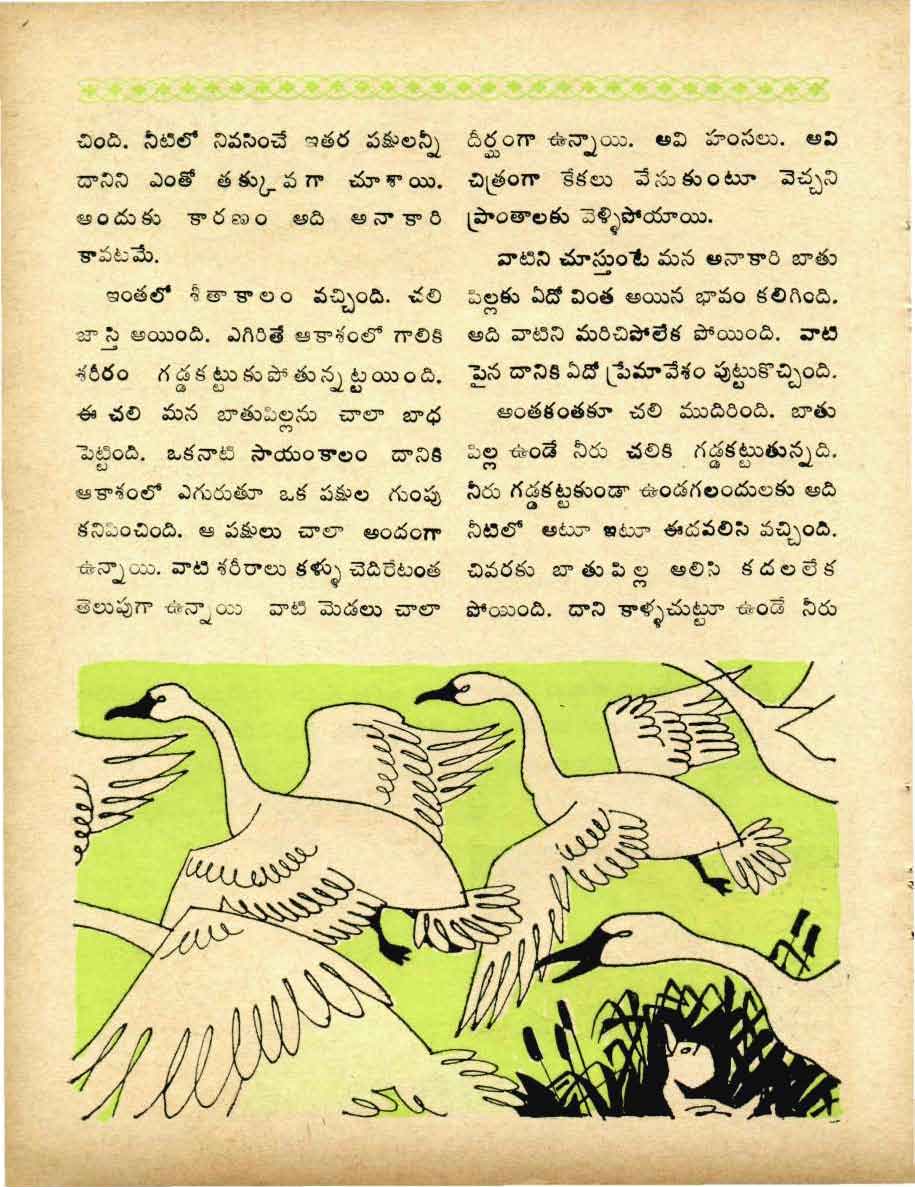 చింది. నీటిలో నివసించే ఇతర పక్షులన్నీ
దానిని ఎంతో తక్కువగా చూశాయి.
అందుకు కారణం అది అనాకారి
కావటమే.
ఇంతలో శీతాకాలం వచ్చింది. చలి
జాస్తి అయింది. ఎగిరితే ఆకాశంలో గాలికి
శరీరం గడ్డకట్టుకుపోతున్నట్టయింది.
ఈ చలి మన బాతుపిల్లను చాలా బాధ
పెట్టింది. ఒకనాటి సాయంకాలం దానికి
ఆకాశంలో ఎగురుతూ ఒక పక్షుల గుంపు
కనిపించింది. ఆ పక్షులు చాలా అందంగా
ఉన్నాయి. వాటి శరీరాలు కళ్ళు చెదిరేటంత
తెలుపుగా ఉన్నాయి వాటి మెడలు చాలా
దీర్ఘంగా ఉన్నాయి. అవి హంసలు. అవి
చిత్రంగా కేకలు వేసుకుంటూ వెచ్చని
ప్రాంతాలకు వెళ్ళిపోయాయి.
వాటిని చూస్తుంటే మన అనాకారి బాతు
పిల్లకు ఏదో వింత అయిన భావం కలిగింది.
అది వాటిని మరిచిపోలేక పోయింది. వాటి
పైన దానికి ఏదో ప్రేమావేశం పుట్టుకొచ్చింది.
అంతకంతకూ చలి ముదిరింది. బాతు
పిల్ల ఉండే నీరు చలికి గడ్డకట్టుతున్నది.
నీరు గడ్డకట్టకుండా ఉండగలందులకు అది
నీటిలో అటూ ఇటూ ఈదవలిసి వచ్చింది.
చివరకు బాతుపిల్ల అలిసి కదలలేక
పోయింది. దాని కాళ్ళచుట్టూ ఉండే నీరు